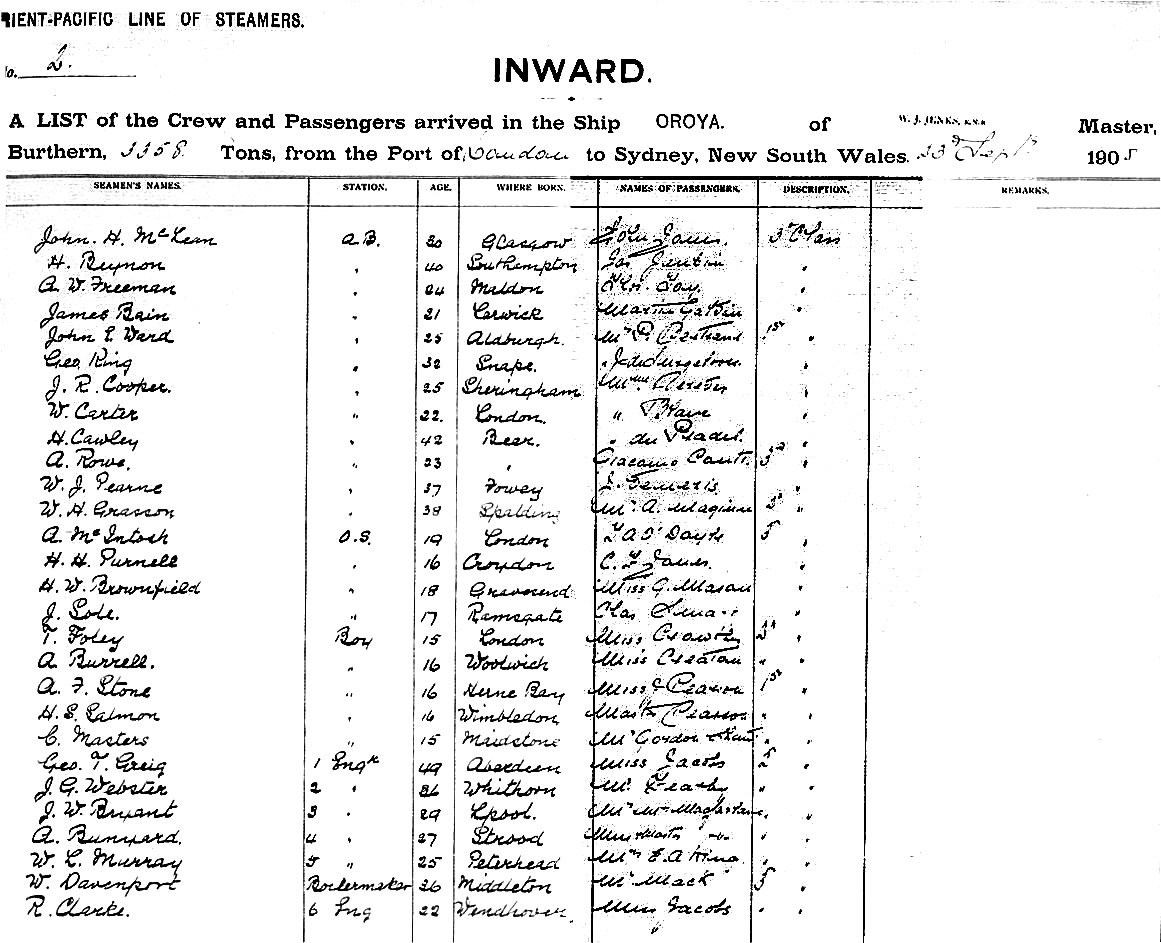 RIENT-PACIFIC LINE OF STEAMERS.
No. 2.
INWARD.
A LIST of the Crew and Passengers arrived in the Ship OROYA. of W. J. JENKS, R.N.R Master,
Burthern, 3358. Tons, from the Port of London to Sydney, New South Wales. 23rd Sept 1905
SEAMEN'S NAMES. STATION. AGE. WHERE BORN. NAMES OF PASSENGERS. DESCRIPTION. REMARKS.
John. H. McLean A.B. 30 Glasgow John James. 3rd Class
H. Reynon " 40 Southampton
A. W. Freeman " 24 Maldon
James Bain " 21 Lerwick "
John E. Ward " 25 Aldburgh. Mr P. Bertrand 1st "
Geo. King " 32 Snape. "
J. R. Cooper. " 25 Sheringham "
W. Carter " 22. London. " Blair "
H. Cawley " 42 Beer. " du Pradel. "
A. Rowe. " 23 " Giacomo 3rd "
W. J. Pearne " 37 Fowey "
W. H. Grasson " 38 Spalding Mr A. Maginn 3rd "
A. McIntosh O.S. 19 London 3 "
H. H. Purnell " 16 Croydon C. F. James. "
H. W. Brownfield " 18 Gravesend Miss G. Mason "
J. Sole. " 17 Ramsgate Chas "
T. Foley Boy 15 London Miss 2nd "
A. Burrell. " 16 Woolwich Miss " "
A. F. Stone " 16 Herne Bay Miss Pearson 1st "
H. S. Salmon " 16 Wimbledon Master Pearson " "
C. Masters " 15 Maidstone Mr Gordon " "
Geo. T. Greig 1 Engr 49 Aberdeen Miss Jacobs 2 "
J. G. Webster 2 " 36 Whithorn Mr. " "
J. W. Bryant 3 " 29 Lpool. Mr Macfarlane " "
A. Bunyard. 4 " 27 Strood " "
W. C. Murray 5 " 25 Peterhead Mrs E. A King. " "
W. Davenport Boilermaker 26 Middleton Mr Mack 3 "
R. Clarke. 6 Eng 22 Wendhover. Miss Jacobs " "
"